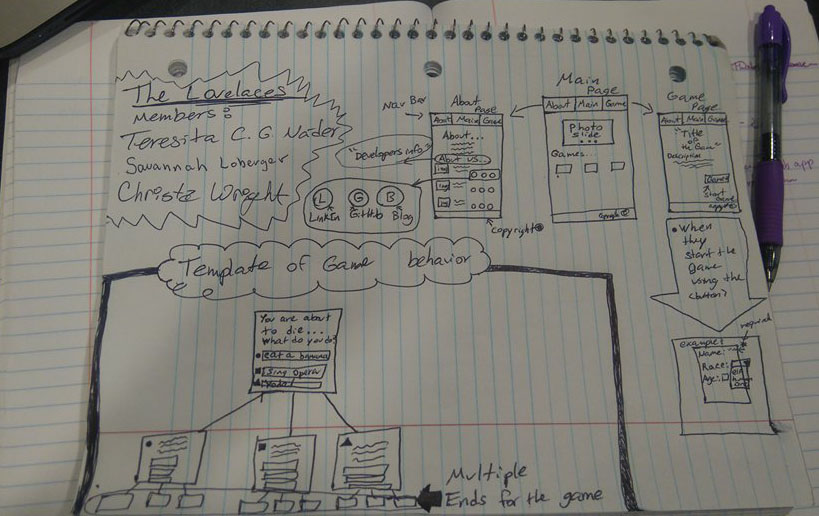 The Lovelaces
Members:
Teresita C. G. Nader
Savannah Loberger
Christa Wright
Nav Bar
About
Page
About Main Game
About...
About Us..
"Developers info"
L G B
LinkIn GitHub Blog
copyright©
Main
Page
About Main Game
Photo
slide
...
Games...
copyright©
Game
Page
About Main Game
"Title
of
the Game"
Description
Start
Game
copyright©
•When
they
start the
game
using the
(button)
example:
required
Name:
Race:
Age:
Template of Game behavior
You are about
to die...
What do you do?
eat a banana
Sing Opera
Multiple
Ends for the game